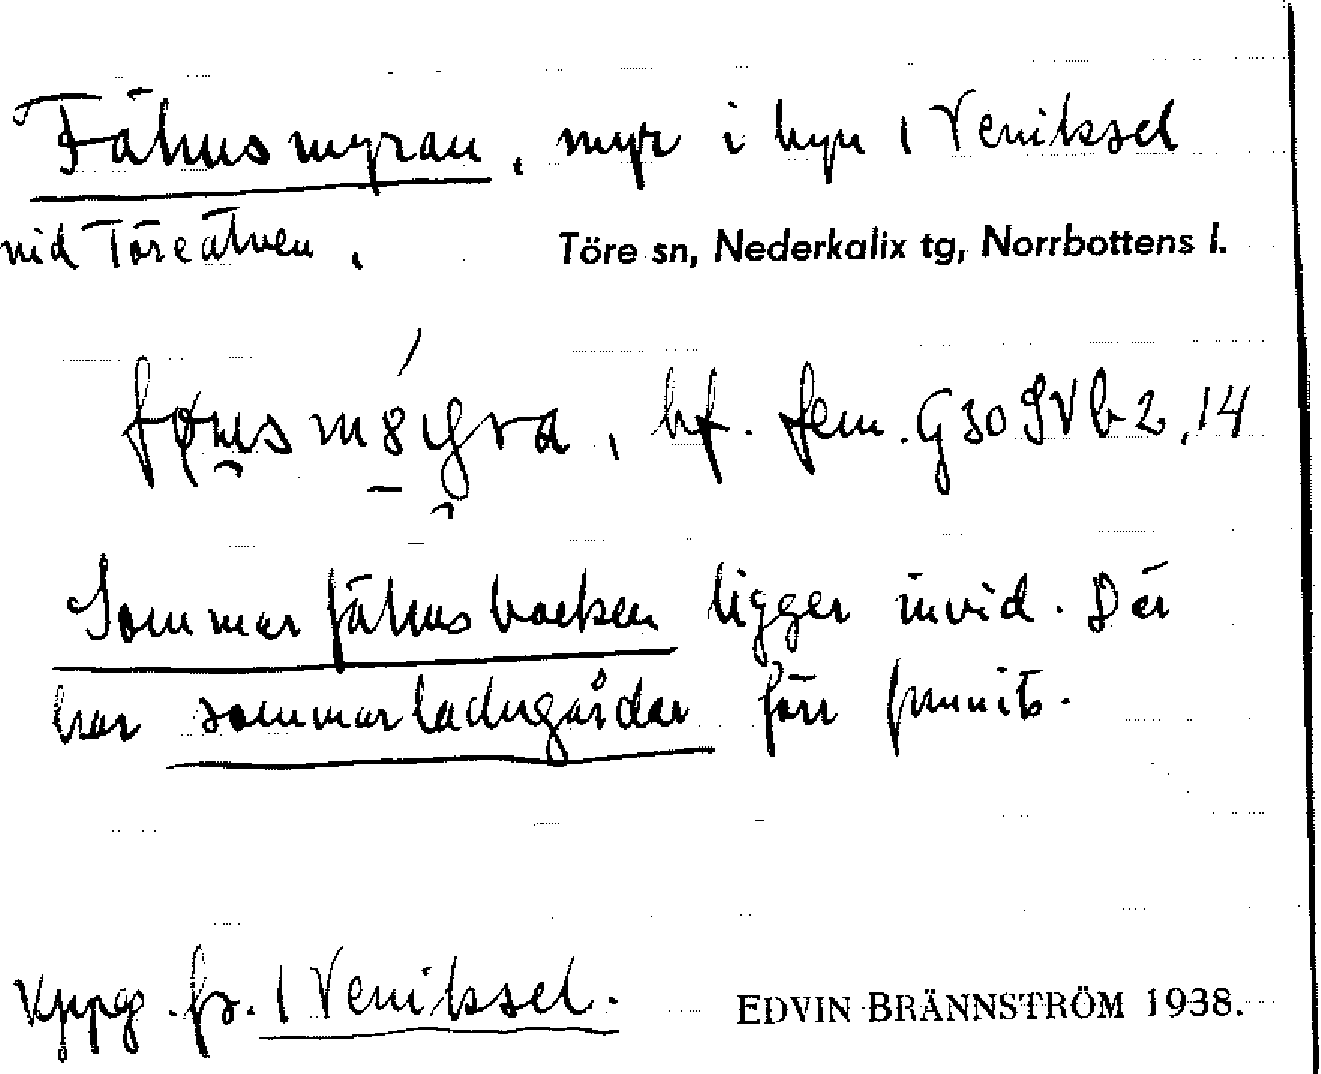 Fähusmyran, myr i byn 1 Veniksel
vid Töreälven. Töre sn, Nederkalix tg, Norrbottens l.
bf. fem. G30SVb2,14
Sommarfähusbacken ligger invid. Där
har sommarladugårdar förr funnits.
Uppg. fr. 1 Veniksel. EDVIN BRÄNNSTRÖM 1938.